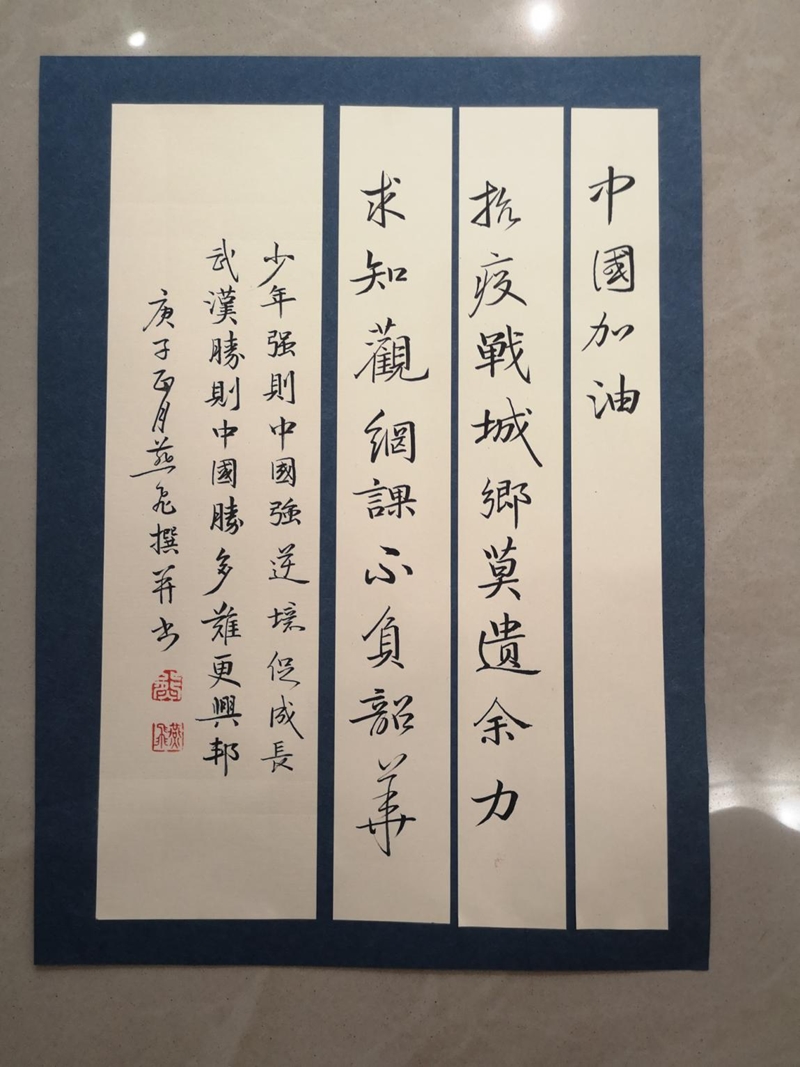 中國加油
抗疫戰城鄉莫遺余力
求知觀網課不負韶華
少年强則中國強逆境促成長
武漢勝則中國勝多難更興邦
庚子正月燕飛撰并书